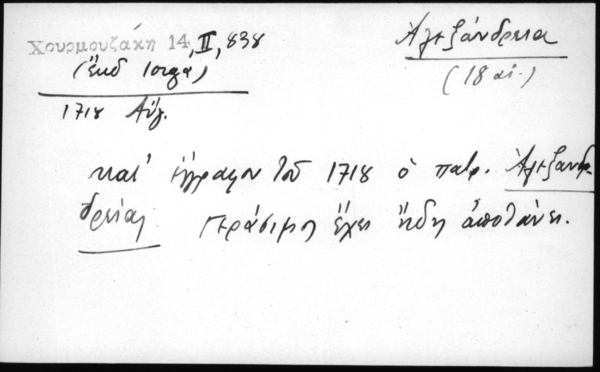 Χουρμουζάκη 14, II, 838
(ἔκδ Ιοργα)
1718 Αὐγ.
Ἀλεξάνδρεια
(18 αἰ.)
κατ' ἔγγραφον τοῦ 1718 ὁ πατρ. Ἀλεξανδ-
δρείας Γεράσιμος ἔχει ἤδη ἀποθάνει.